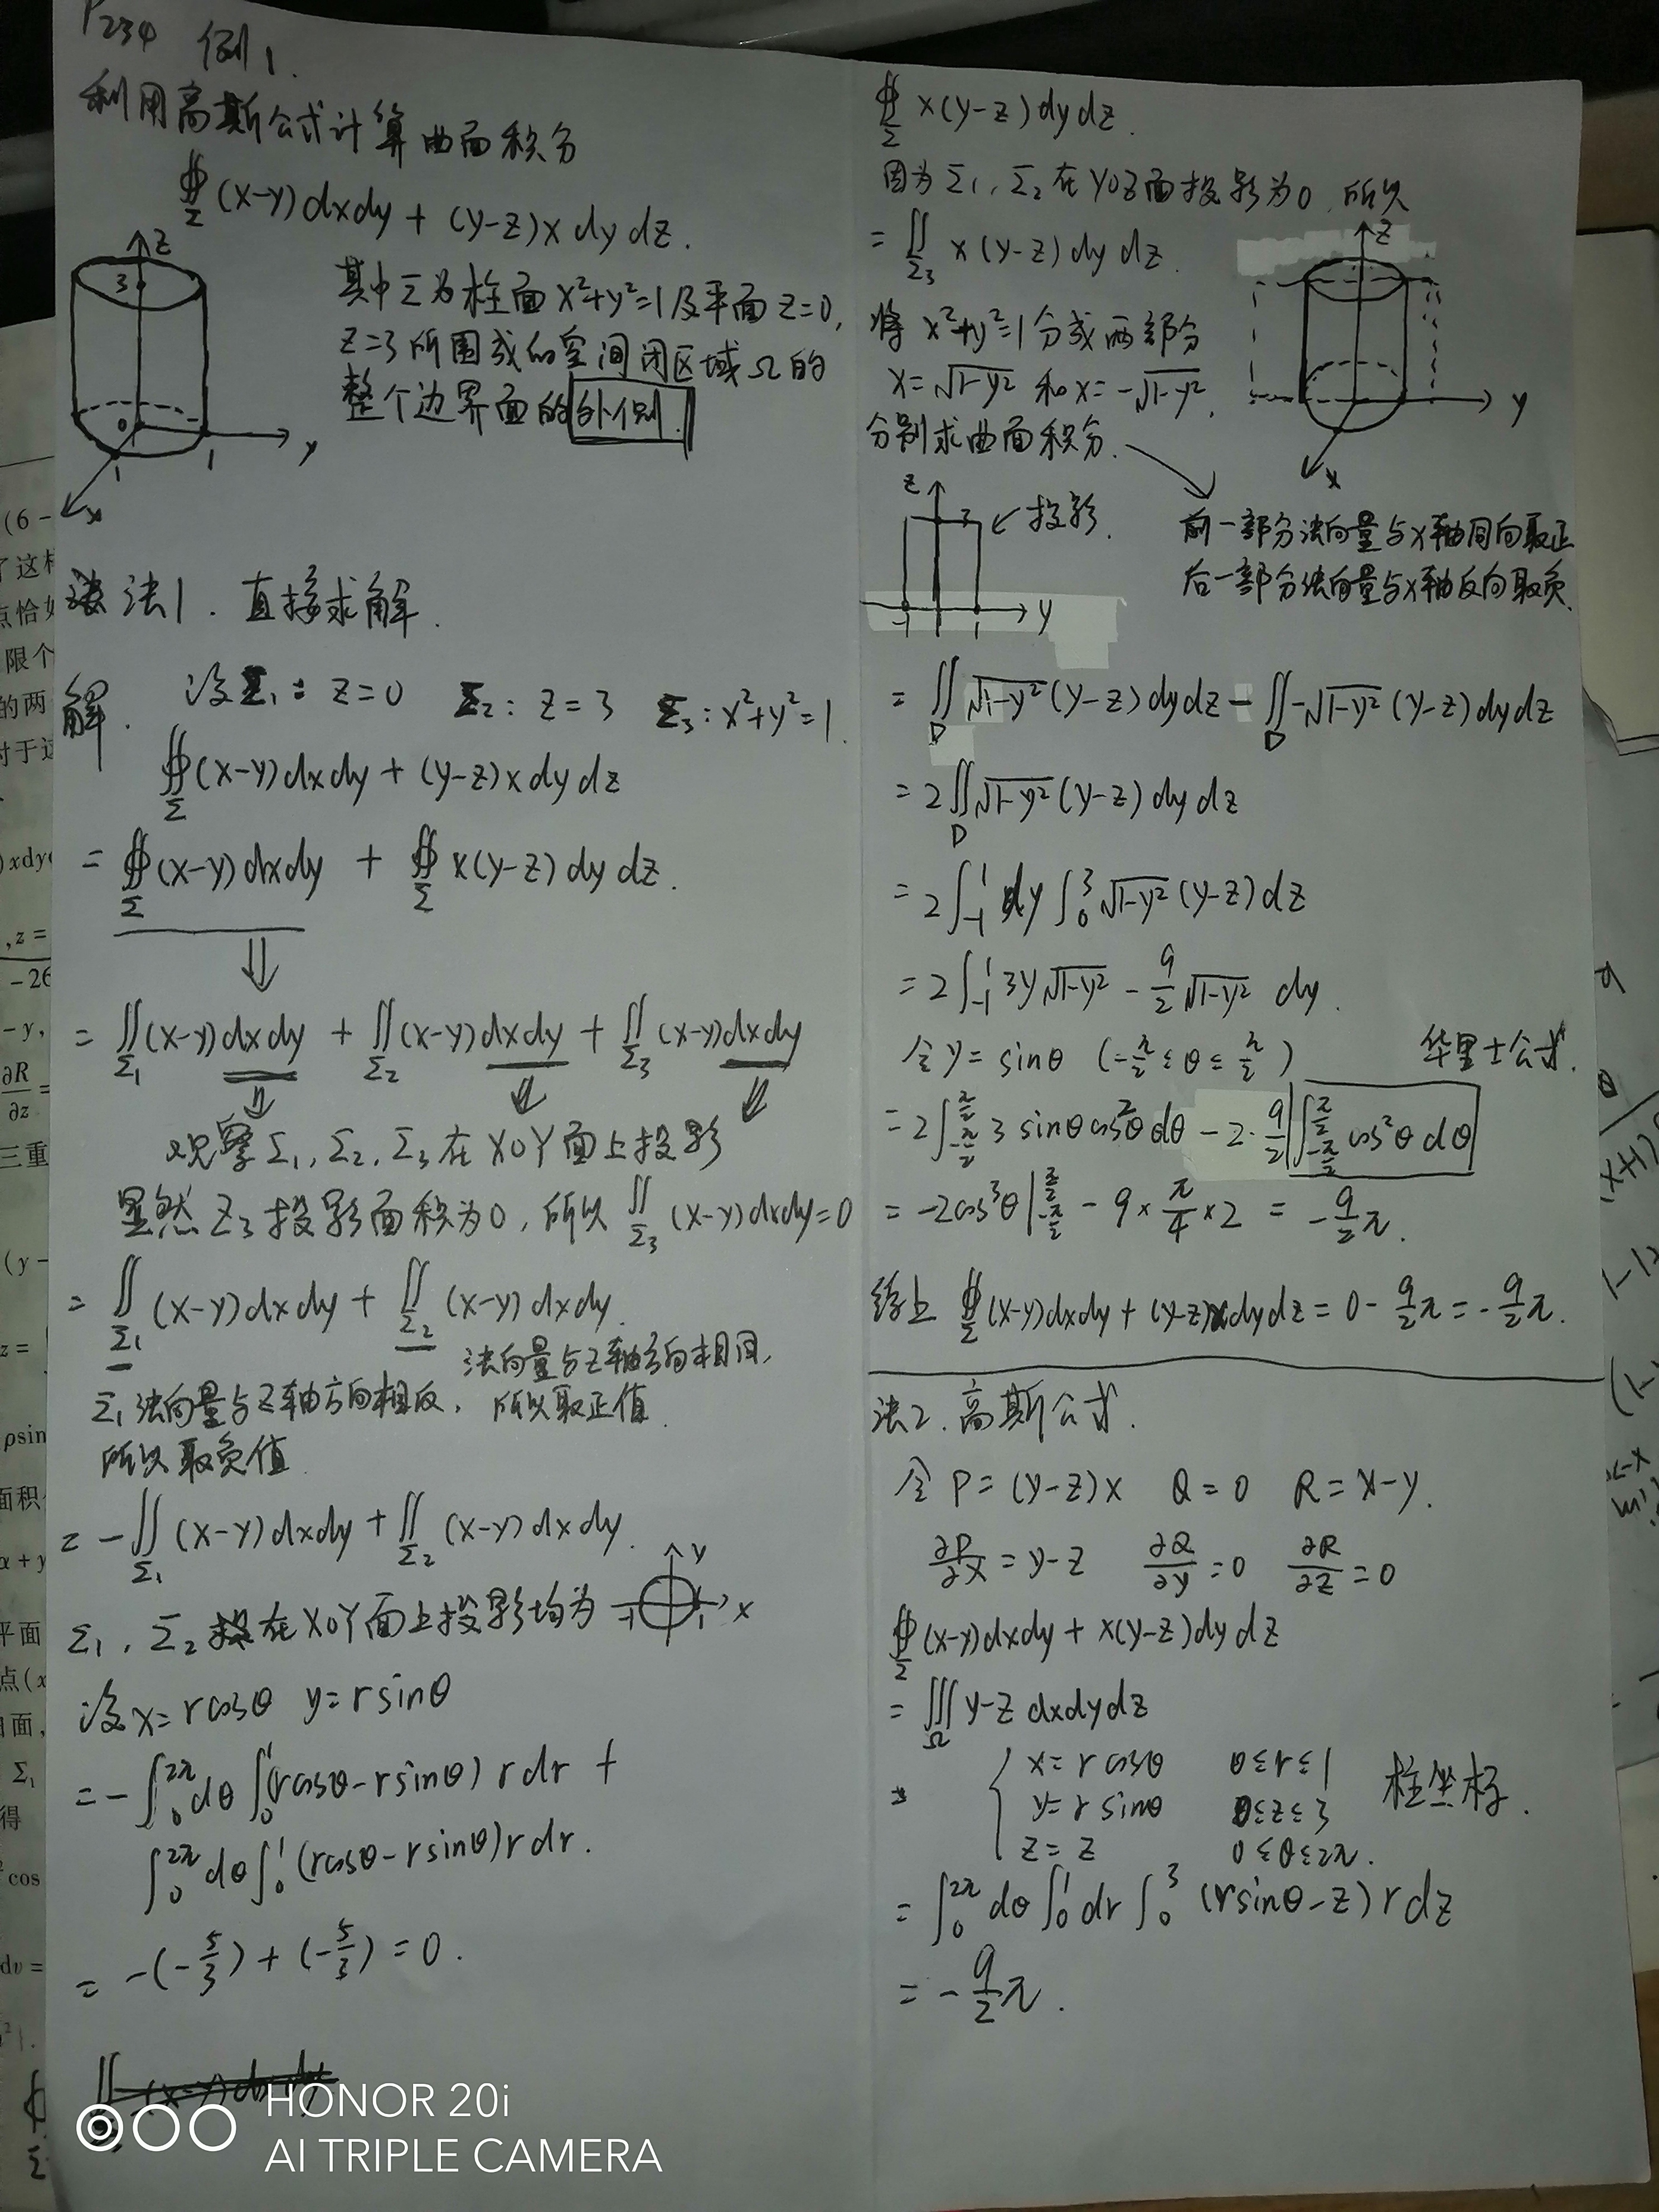 P234 例1.
利用高斯公式计算曲面积分
∯_Σ (x-y)dxdy + (y-z)x dy dz.
其中Σ为柱面x²+y²=1及平面z=0,
z=3所围成的空间闭区域Ω的
整个边界面的外侧.
z
3
0
1
1
y
x
法1. 直接求解.
解. 设Σ₁: z=0 Σ₂: z=3 Σ₃: x²+y²=1.
∯_Σ (x-y)dxdy + (y-z)x dy dz
= ∯_Σ (x-y)dxdy + ∯_Σ x(y-z)dy dz.
⇓
= ∬_Σ₁ (x-y)dxdy + ∬_Σ₂ (x-y)dxdy + ∬_Σ₃ (x-y)dxdy
⇓ ⇓ ⇓
观察Σ₁, Σ₂, Σ₃在XOY面上投影
显然Σ₃投影面积为0, 所以 ∬_Σ₃ (x-y)dxdy=0
= ∬_Σ₁ (x-y)dxdy + ∬_Σ₂ (x-y)dxdy.
法向量与z轴方向相同,
Σ₁法向量与z轴方向相反, 所以取正值
所以取负值
= -∬_Σ₁ (x-y)dxdy + ∬_Σ₂ (x-y)dxdy.
Σ₁, Σ₂在XOY面上投影均为
y
-1
1
x
设x=rcosθ y=rsinθ
= -∫₀^2π dθ ∫₀^1 (rcosθ-rsinθ) r dr +
∫₀^2π dθ ∫₀^1 (rcosθ-rsinθ) r dr.
= -(-5/3) + (-5/3) = 0.
∯_Σ x(y-z)dy dz.
因为Σ₁, Σ₂在YOZ面投影为0, 所以
= ∬_Σ₃ x(y-z)dy dz.
将x²+y²=1分成两部分
x=√(1-y²) 和x=-√(1-y²).
分别求曲面积分.
z
y
x
z
3
← 投影.
-1
1
y
前一部分法向量与x轴同向取正
后一部分法向量与x轴反向取负.
= ∬_D √(1-y²)(y-z)dydz - ∬_D -√(1-y²)(y-z)dydz
= 2∬_D √(1-y²)(y-z)dydz
= 2∫₋₁^1 dy ∫₀^3 √(1-y²)(y-z)dz
= 2∫₋₁^1 3y√(1-y²) - 9/2 √(1-y²) dy.
令y=sinθ (-π/2≤θ≤π/2) 华里士公式.
= 2∫_{-π/2}^{π/2} 3 sinθcos²θ dθ - 2·9/2 ∫_{-π/2}^{π/2} cos²θ dθ
= -2cos³θ|_{-π/2}^{π/2} - 9×π/4×2 = -9/2π.
综上 ∯_Σ (x-y)dxdy + (y-z)xdydz = 0 - 9/2π = -9/2π.
法2. 高斯公式.
令P=(y-z)x Q=0 R=x-y.
∂P/∂x = y-z ∂Q/∂y = 0 ∂R/∂z = 0
∯_Σ (x-y)dxdy + x(y-z)dydz
= ∭_Ω y-z dxdydz
{ x=rcosθ 0≤r≤1
y=rsinθ 0≤z≤3 柱坐标.
z=z 0≤θ≤2π.
= ∫₀^2π dθ ∫₀^1 dr ∫₀^3 (rsinθ-z) r dz
= -9/2π.
HONOR 20i
AI TRIPLE CAMERA